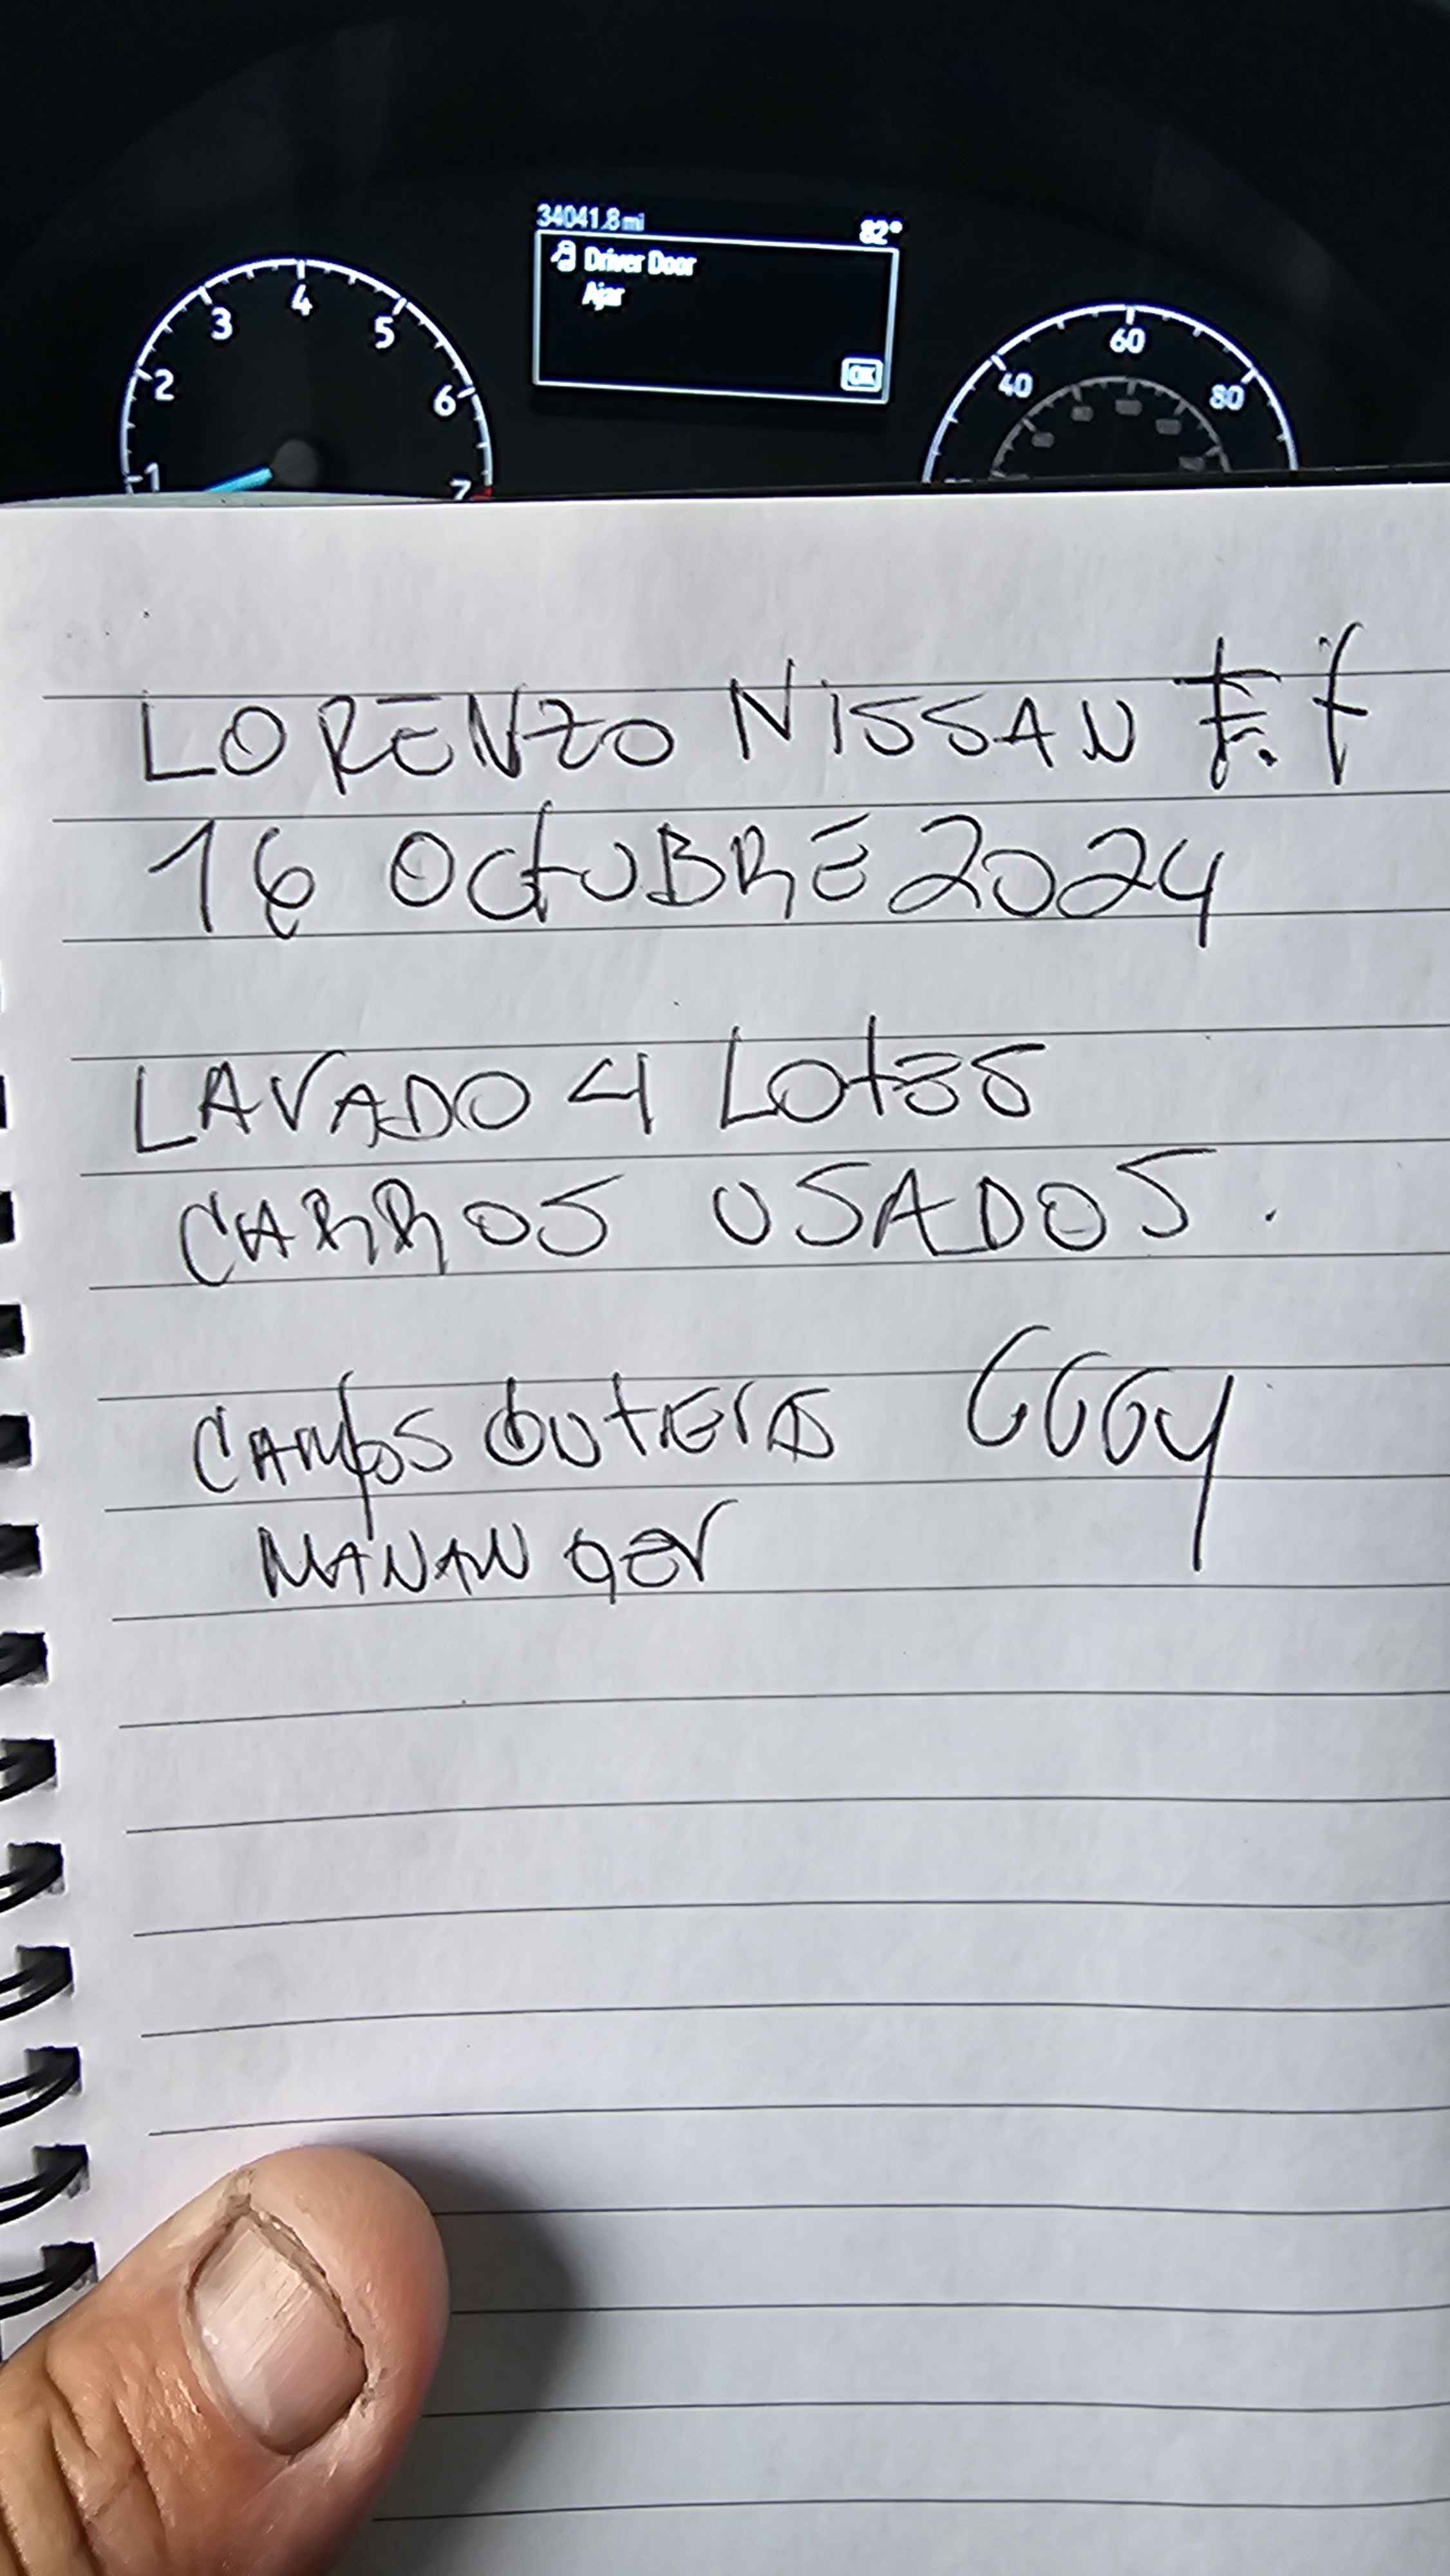 34041.8 mi 82°
Driver Door
Ajar
OK
1 2 3 4 5 6 7
40 60 80
LORENZO NISSAN
16 OCTUBRE 2024
LAVADO 4 LOTES
CARROS USADOS.
CARLOS
MANAN ger